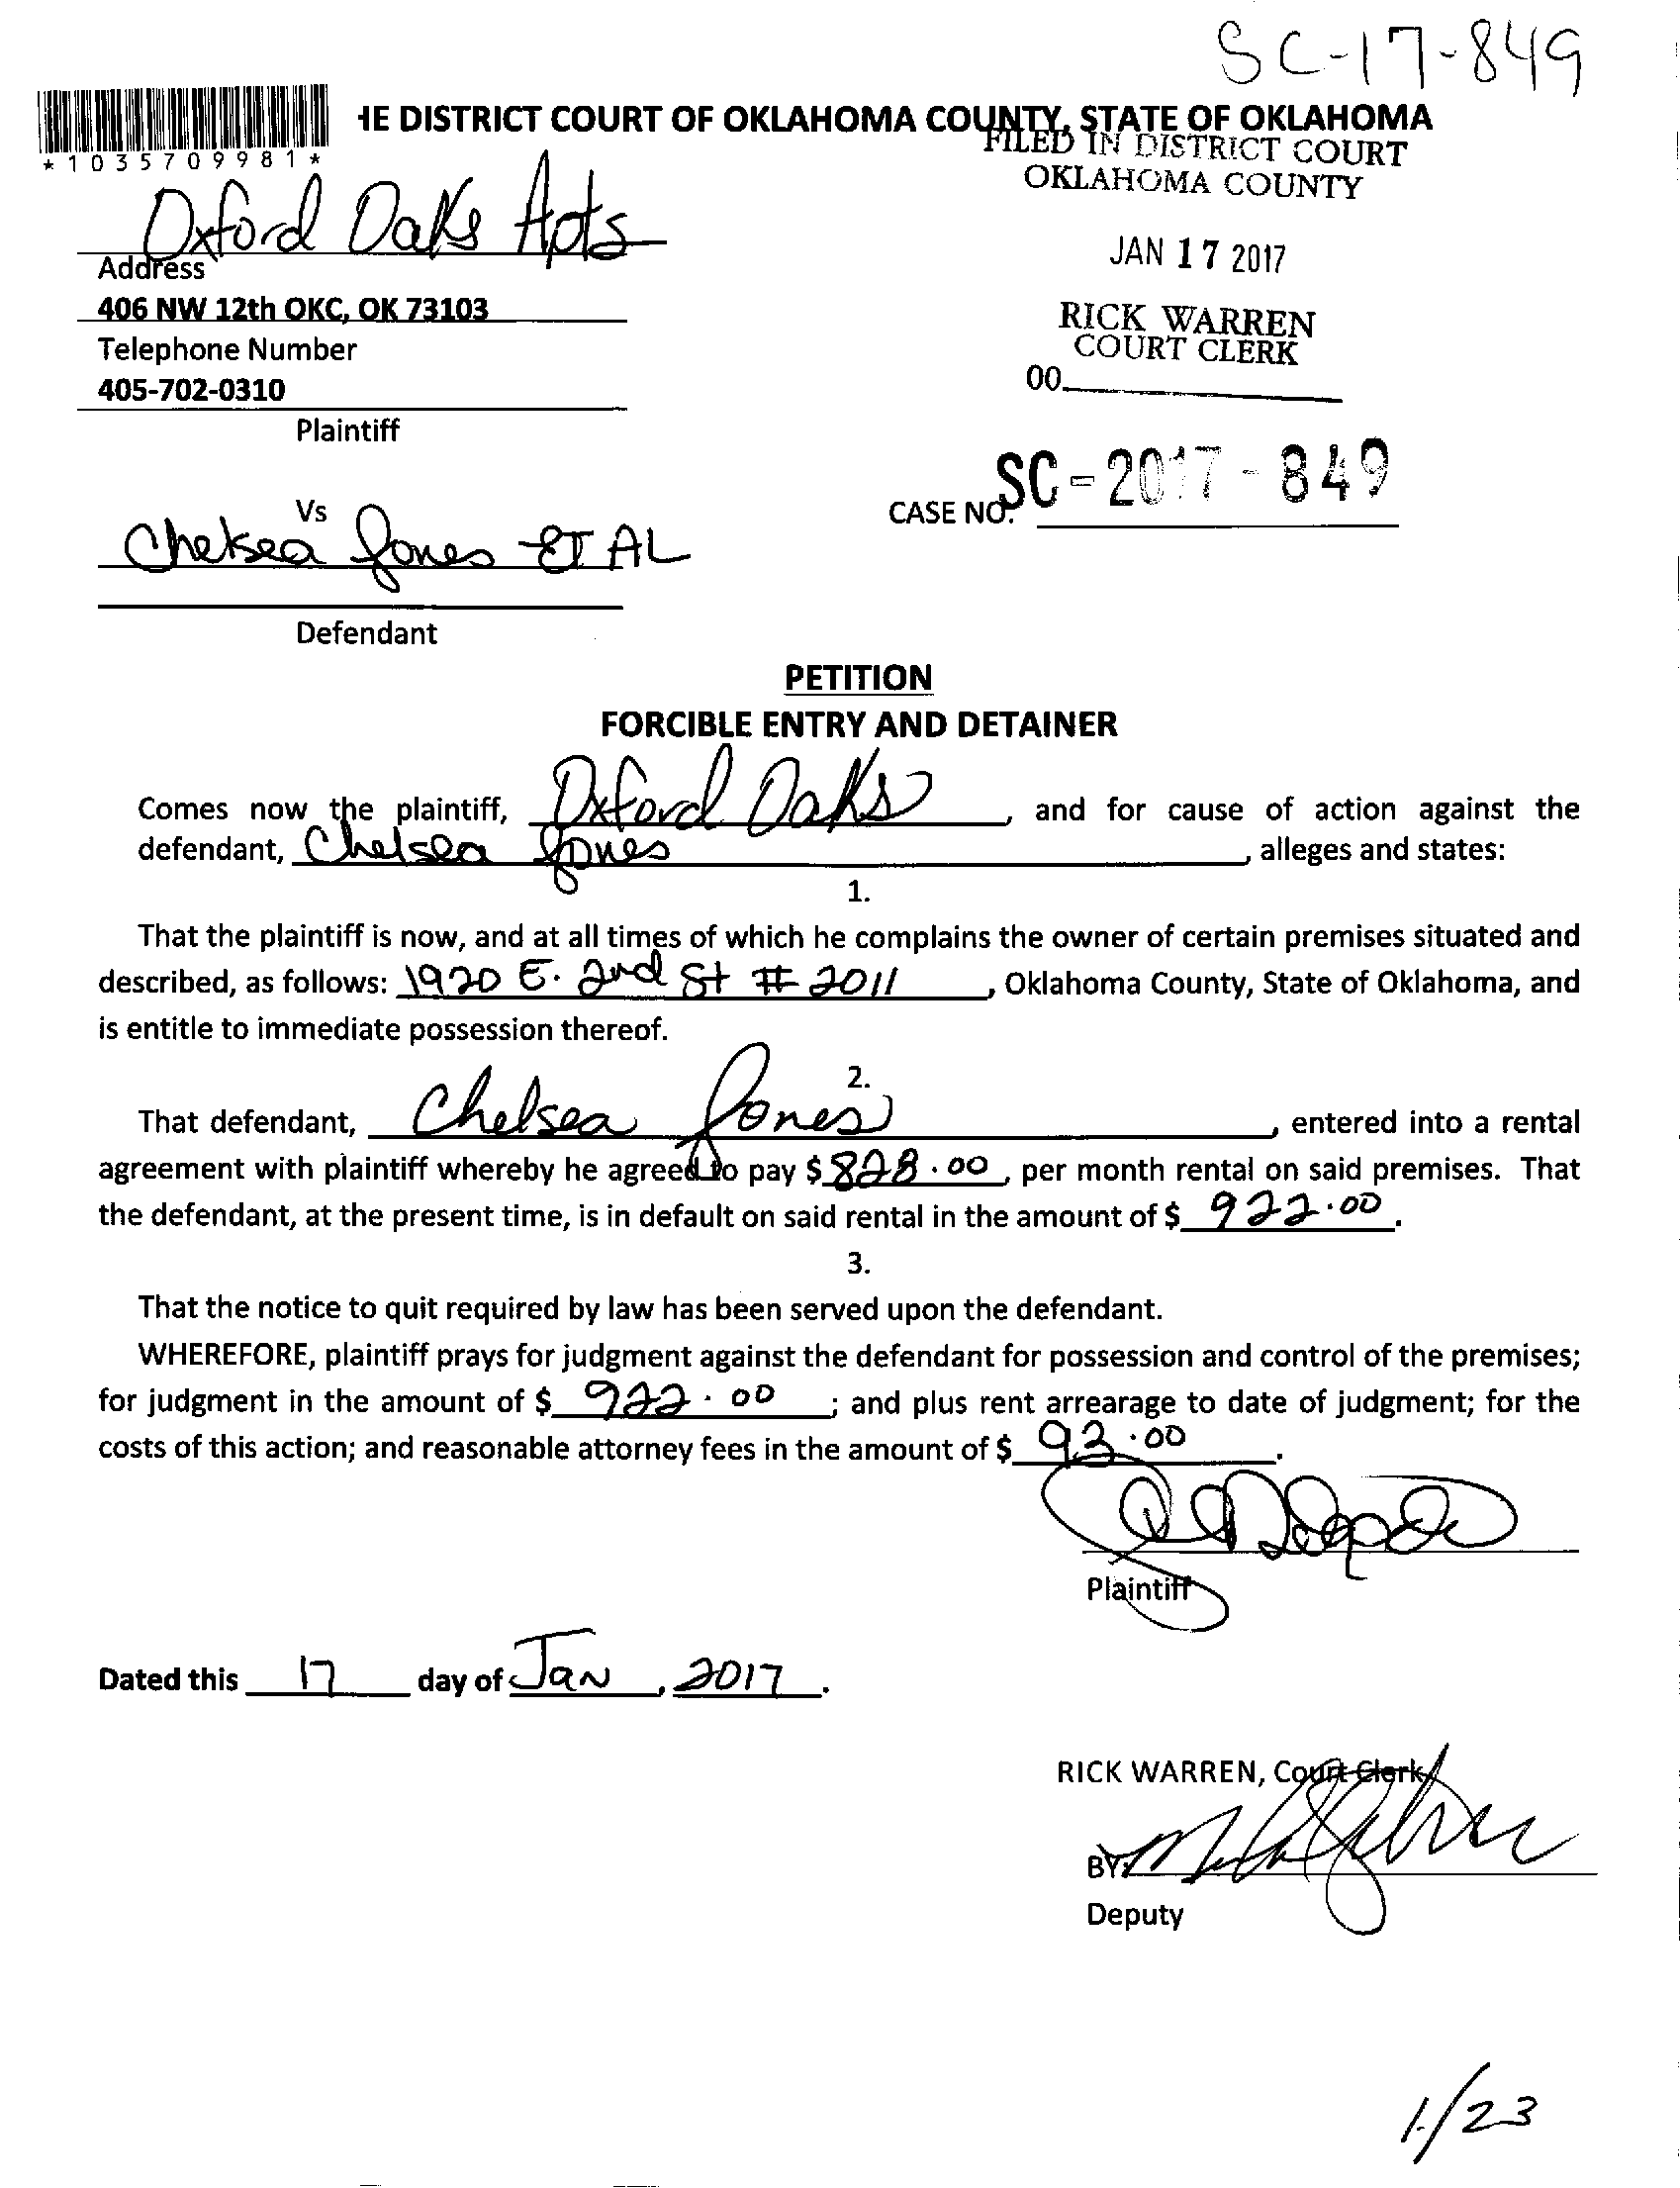 SC-17-849
HE DISTRICT COURT OF OKLAHOMA COUNTY, STATE OF OKLAHOMA
*1035709981*
FILED IN DISTRICT COURT
OKLAHOMA COUNTY
Oxford Oaks Apts
JAN 17 2017
Address
406 NW 12th OKC, OK 73103
RICK WARREN
COURT CLERK
Telephone Number
00
405-702-0310
Plaintiff
CASE NO. SC-2017-849
Vs
Chelsea Jones ET AL
Defendant
PETITION
FORCIBLE ENTRY AND DETAINER
Comes now the plaintiff, Oxford Oaks, and for cause of action against the
defendant, Chelsea Jones, alleges and states:
1.
That the plaintiff is now, and at all times of which he complains the owner of certain premises situated and
described, as follows: 1920 E. 2nd St # 2011, Oklahoma County, State of Oklahoma, and
is entitle to immediate possession thereof.
2.
That defendant, Chelsea Jones, entered into a rental
agreement with plaintiff whereby he agreed to pay $ 828.00, per month rental on said premises. That
the defendant, at the present time, is in default on said rental in the amount of $ 922.00.
3.
That the notice to quit required by law has been served upon the defendant.
WHEREFORE, plaintiff prays for judgment against the defendant for possession and control of the premises;
for judgment in the amount of $ 922.00; and plus rent arrearage to date of judgment; for the
costs of this action; and reasonable attorney fees in the amount of $ 93.00.
Plaintiff
Dated this 17 day of Jan, 2017.
RICK WARREN, Court Clerk
BY:
Deputy
1/23